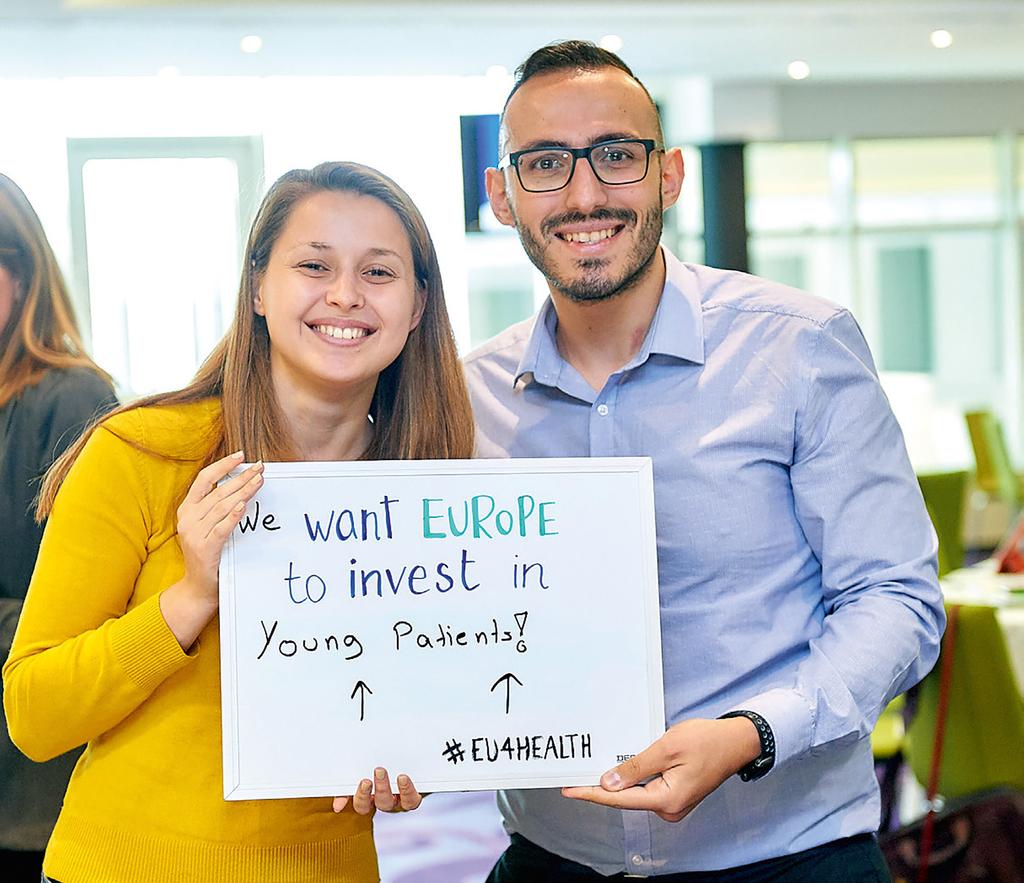 We want EUROPE
to invest in
Young Patients!
↑ ↑
#EU4HEALTH